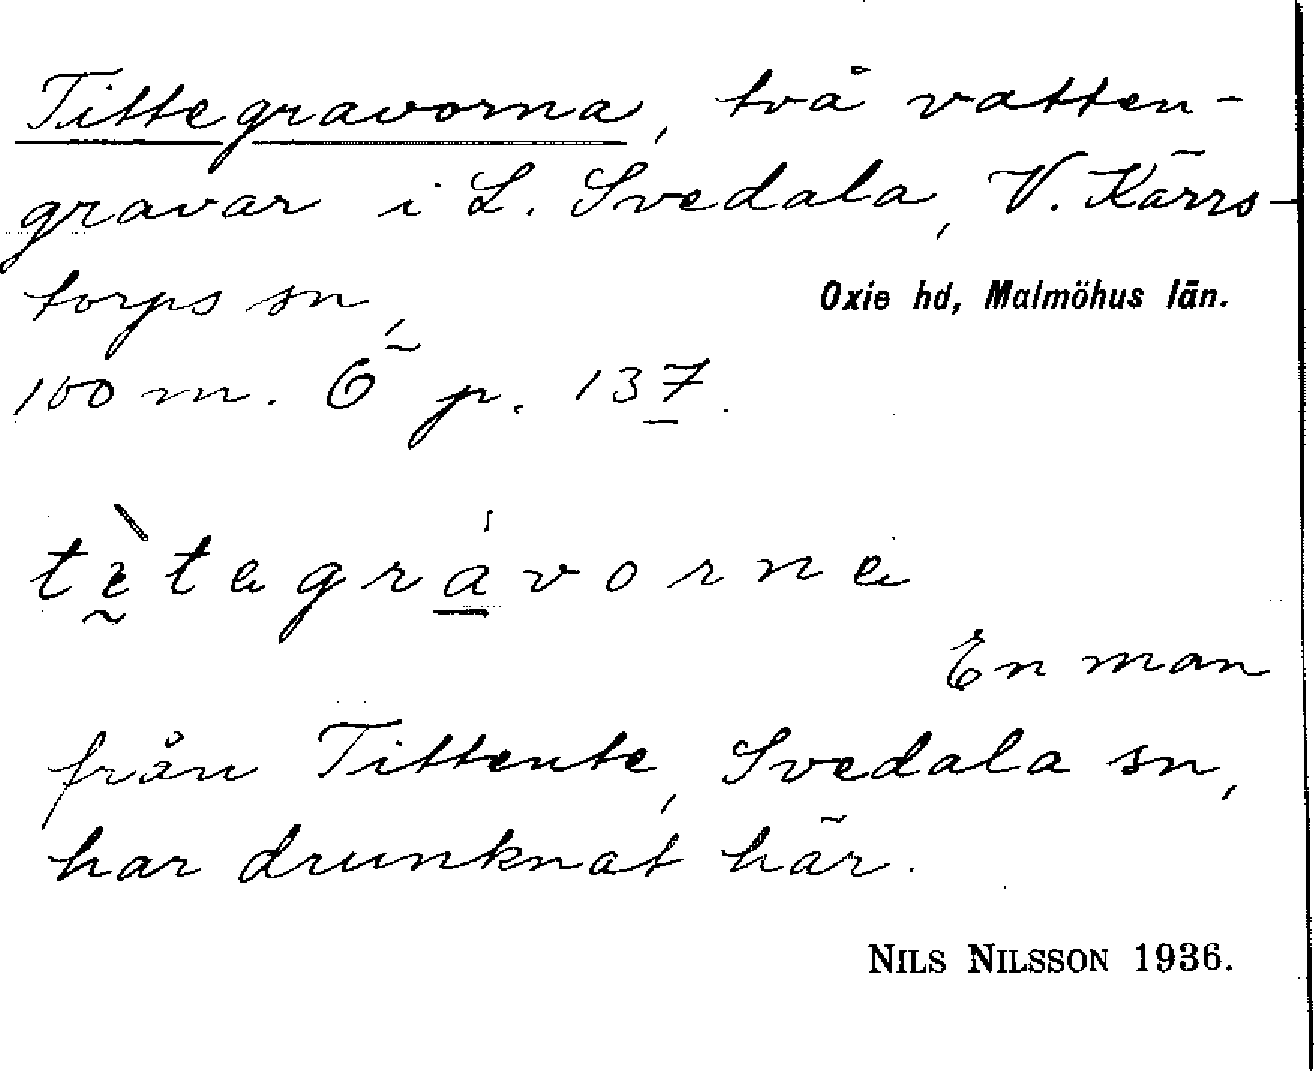 Tittegravorna, två vatten-
gravar i L. Svedala, V. Kärrs-
torps sn,
Oxie hd, Malmöhus län.
100 m. Ö p. 137.
tètagrávorna
En man
från Tittente, Svedala sn,
har drunknat här.
NILS NILSSON 1936.